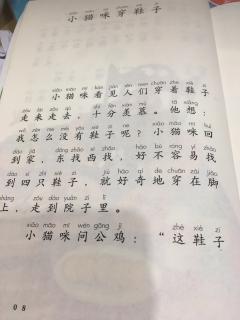 小猫咪穿鞋子
xiǎo māo mī kàn jiàn rén men chuān zhe xié zi
小猫咪看见人们穿着鞋子
zǒu lái zǒu qù shí fēn xiàn mù tā xiǎng
走来走去，十分羡慕。他想：
wǒ zěn me méi yǒu xié zi ne xiǎo māo mī huí
我怎么没有鞋子呢？小猫咪回
dào jiā dōng zhǎo xī zhǎo hǎo bù róng yì zhǎo
到家，东找西找，好不容易找
dào sì zhī xié zi jiù hào qí de chuān zài jiǎo
到四只鞋子，就好奇地穿在脚
zǒu dào yuàn zi lǐ
上，走到院子里。
xiǎo māo mī wèn gōng jī zhè xié zi
小猫咪问公鸡：“这鞋子
08